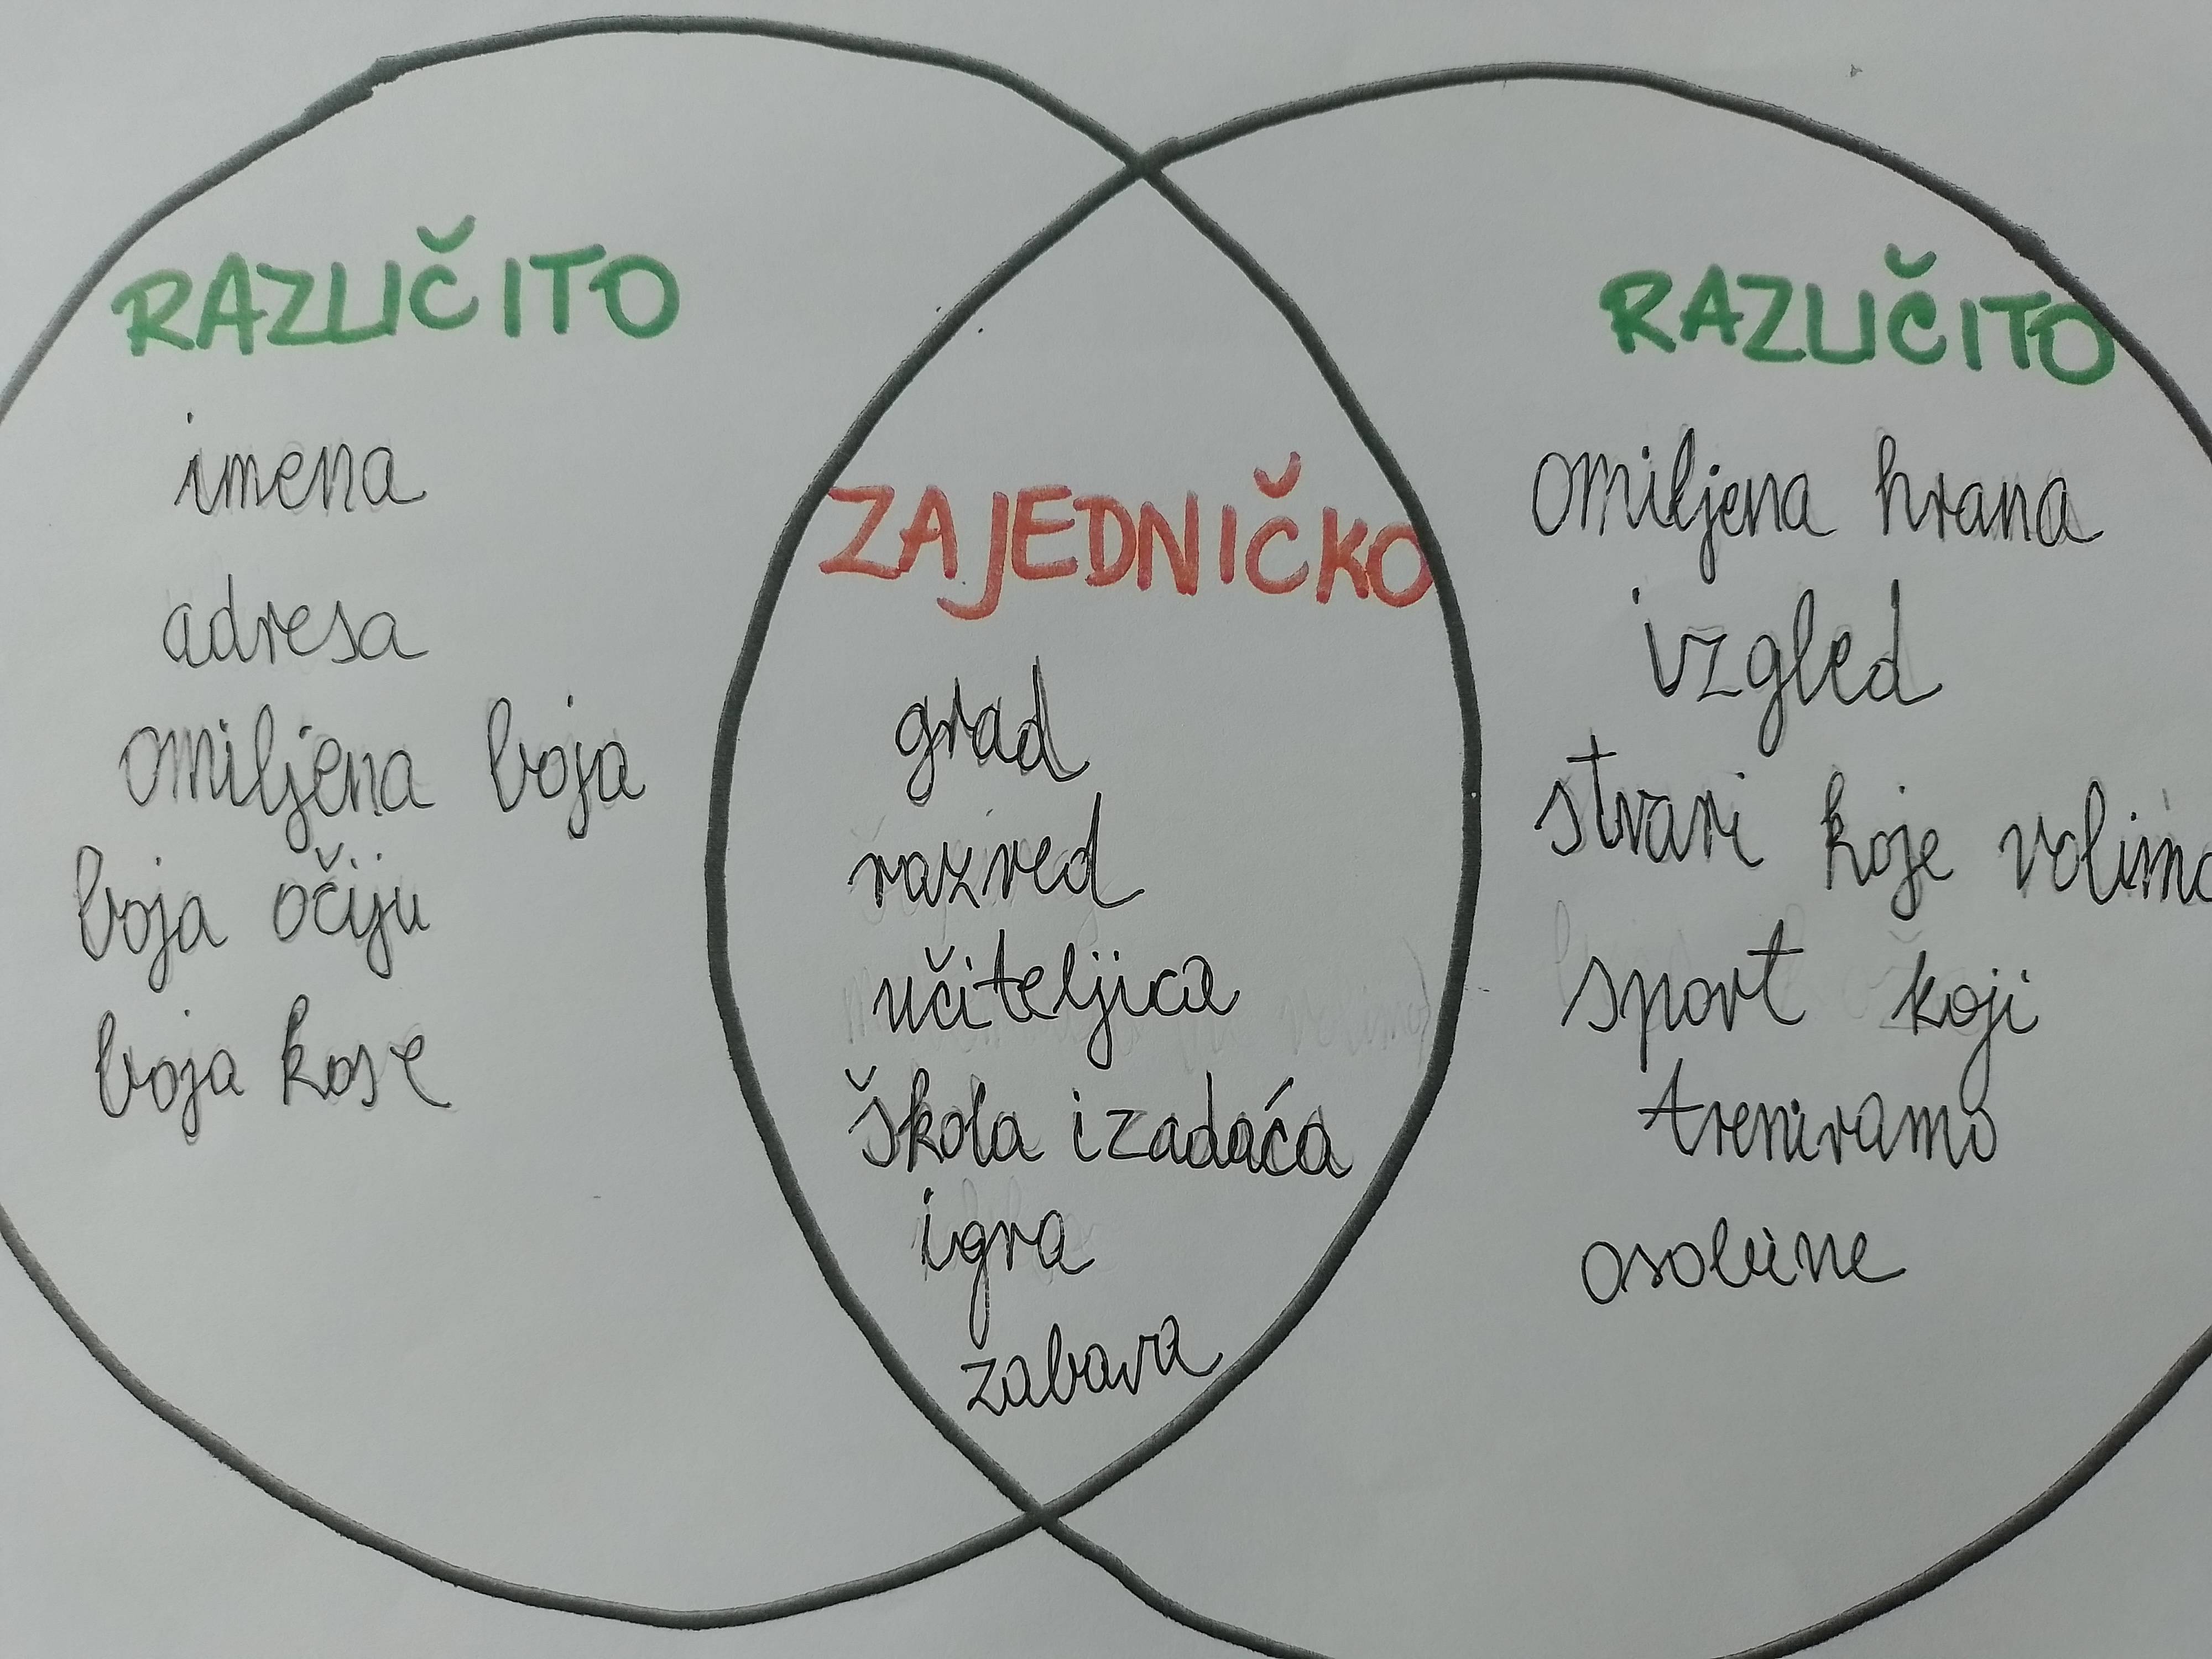 RAZLIČITO
imena
adresa
omiljena boja
boja očiju
boja kose
ZAJEDNIČKO
grad
razred
učiteljica
škola i zadaća
igra
zabava
RAZLIČITO
omiljena hrana
izgled
stvari koje volimo
sport koji
treniramo
osobine